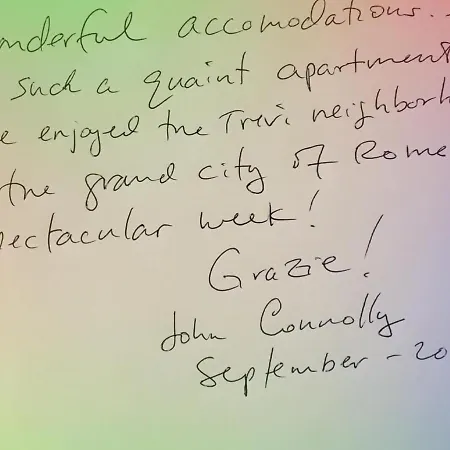 onderful accomodations...
such a quaint apartment
e enjoyed the Trevi neighborh
the grand city of Rome
pectacular week!
Grazie!
John Connolly
September - 20